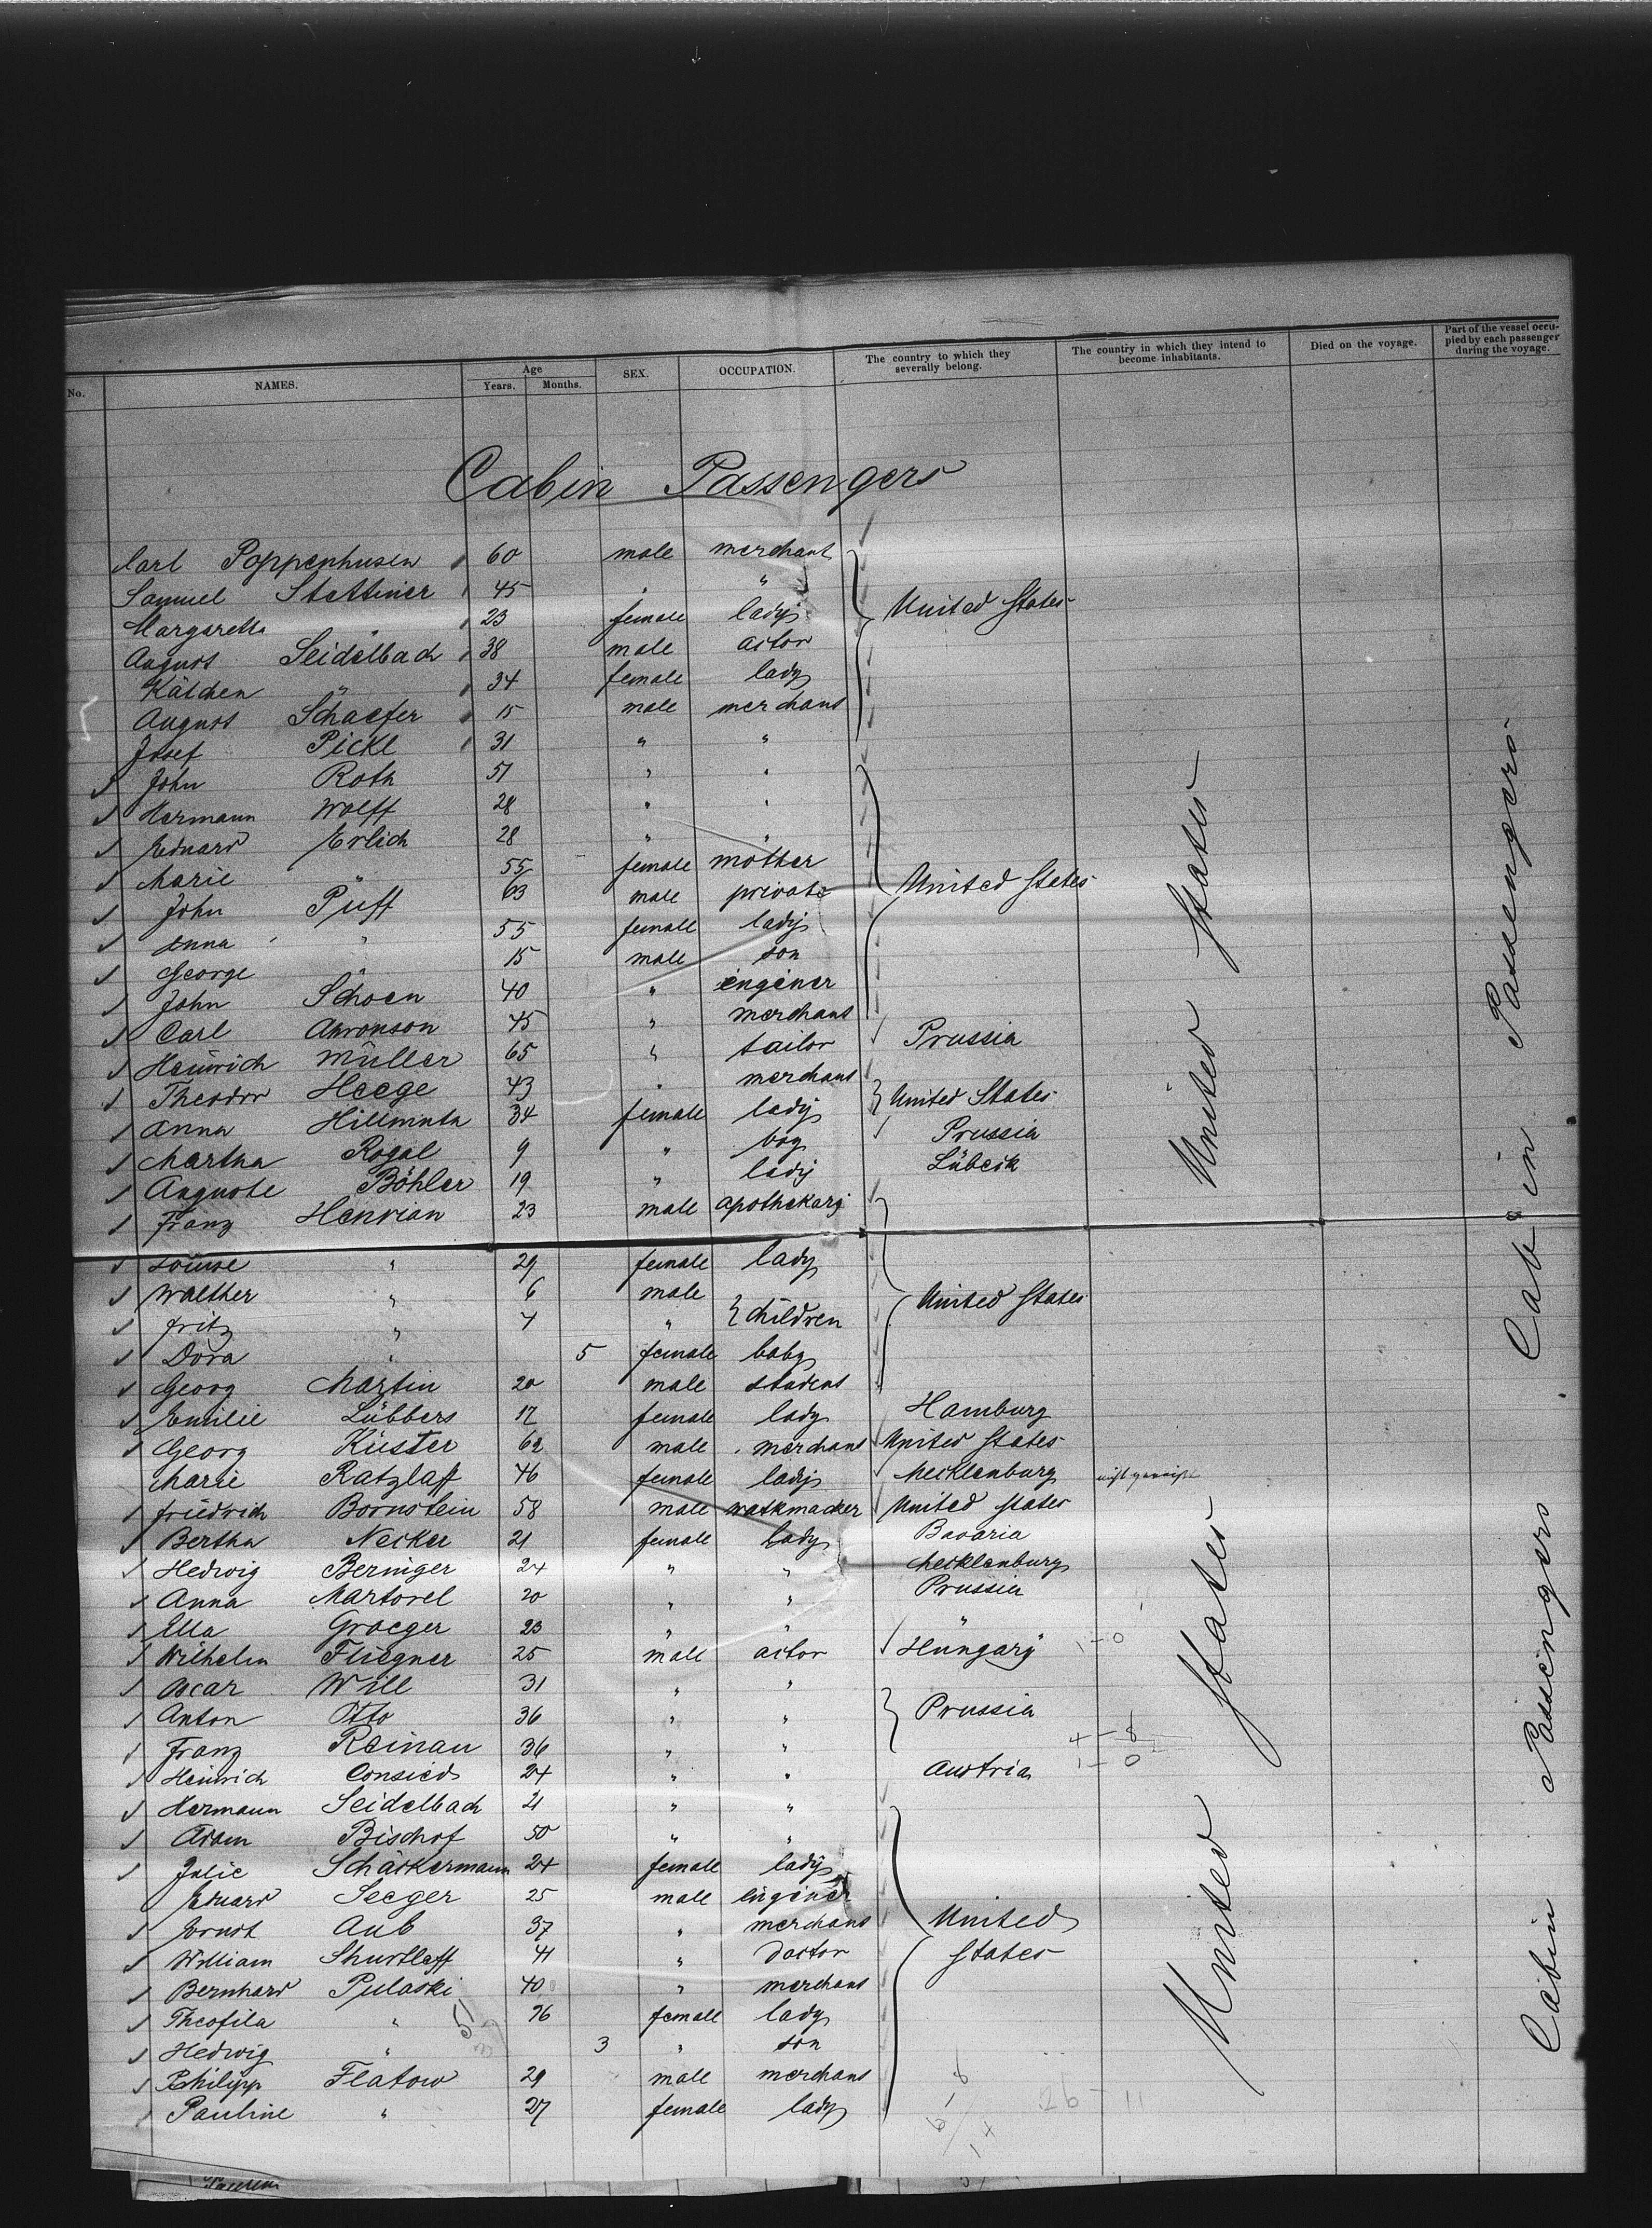 No. NAMES. Age Years. Months. SEX. OCCUPATION. The country to which they severally belong. The country in which they intend to become inhabitants. Died on the voyage. Part of the vessel occupied by each passenger during the voyage.
Cabin Passengers
Carl Poppenhusen 60 male merchant
Samuel Stettiner 45 " "
Margaretha " 23 female lady United States
August Seidelbach 38 male actor
Kätchen " 34 female lady
August Schaefer 15 male merchant
Josef Pickl 31 " "
John Roth 51 " "
Hermann Wolff 28 " "
Eduard Erlich 28 " "
Marie " 55 female mother
John Püff 63 male private United States
Anna " 55 female lady
George " 15 male son
John Schoen 40 " enginer
Carl Aaronson 45 " merchant
Heinrich Müller 65 " tailor Prussia
Theodor Heege 43 " merchant
Anna Hillmuth 34 female lady United States
Martha Rogal 9 " boy Prussia
Auguste Böhler 19 " lady Lübeck
Franz Henrian 23 male apothekary
Louise " 29 female lady
Walther " 6 male
Fritz " 4 " children United States
Dora " 5 female baby
Georg Martin 20 male student
Emilie Lübbers 17 female lady Hamburg
Georg Küster 62 male merchant United States
Marie Ratzlaff 46 female lady Mecklenburg
Friedrich Bornstein 58 male watkmacker United States
Bertha Necker 21 female lady Bavaria
Hedwig Beringer 24 " " Mecklenburg
Anna Martorel 20 " " Prussia
Ella Graeger 23 " "
Wilhelm Fliegner 25 male actor Hungary 1-0
Oscar Will 31 " "
Anton Otto 36 " " Prussia
Franz Reinau 36 " " 4-8
Heinrich Consied 24 " " Austria 1-0
Hermann Seidelbach 21 " "
Adam Bischof 50 " "
Julie Schäckermann 24 female lady
Eduard Seeger 25 male enginer
Ernst Aub 37 " merchant United
William Shurtleff 41 " Doctor States
Bernhard Pulaski 40 " merchant
Theofila " female lady
Hedwig " 3 " son
Philipp Flatow 29 male merchant
Pauline " 27 female lady 26-11
United States
United States
Cabin Passengers
Cabin Passengers